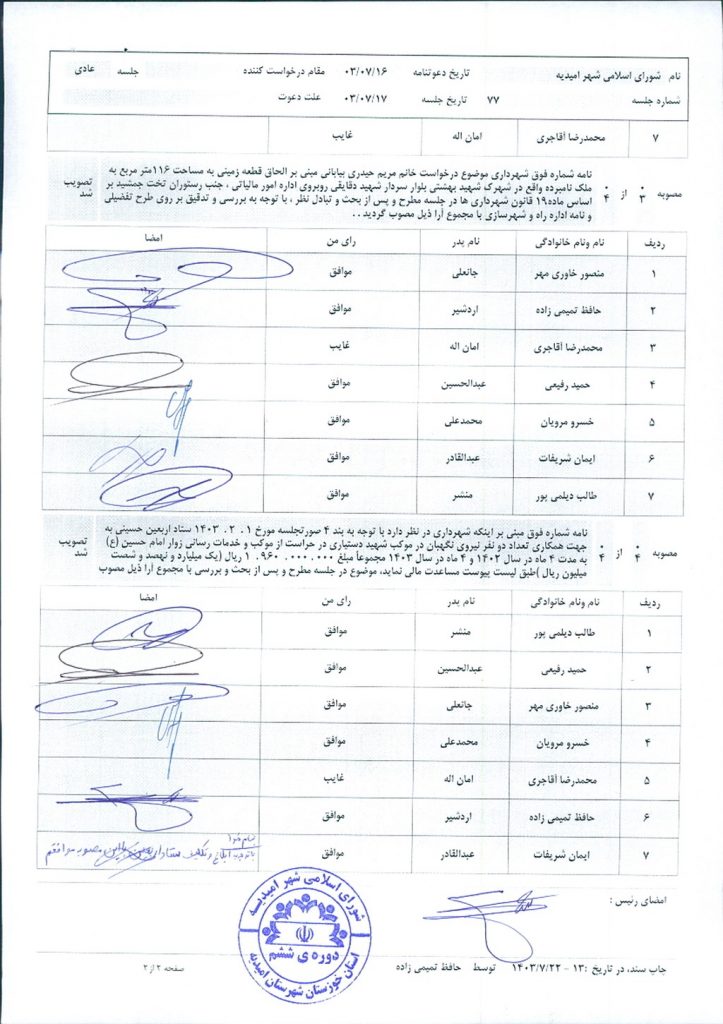 نام شورای اسلامی شهر امیدیه تاریخ دعوتنامه ۰۳/۰۷/۱۶ مقام درخواست کننده جلسه عادی
شماره جلسه ۷۷ تاریخ جلسه ۰۳/۰۷/۱۷ علت دعوت
۷ محمدرضا آقاجری امان اله غایب
مصوبه ۳ از ۴
نامه شماره فوق شهرداری موضوع درخواست خانم مریم حیدری بیابانی مبنی بر الحاق قطعه زمینی به مساحت ۱۱۶متر مربع به
ملک نامبرده واقع در شهرک شهید بهشتی بلوار سردار شهید دقایقی روبروی اداره امور مالیاتی ، جنب رستوران تخت جمشید بر
اساس ماده۱۹ قانون شهرداری ها در جلسه مطرح و پس از بحث و تبادل نظر ، با توجه به بررسی و تدقیق بر روی طرح تفضیلی
و نامه اداره راه و شهرسازی با مجموع آرا ذیل مصوب گردید ..
تصویب شد
ردیف نام ونام خانوادگی نام پدر رای من امضا
۱ منصور خاوری مهر جانعلی موافق
۲ حافظ تمیمی زاده اردشیر موافق
۳ محمدرضا آقاجری امان اله غایب
۴ حمید رفیعی عبدالحسین موافق
۵ خسرو مرویان محمدعلی موافق
۶ ایمان شریفات عبدالقادر موافق
۷ طالب دیلمی پور منشر موافق
مصوبه ۴ از ۴
نامه شماره فوق مبنی بر اینکه شهرداری در نظر دارد با توجه به بند ۴ صورتجلسه مورخ ۱ . ۲ . ۱۴۰۳ ستاد اربعین حسینی به
جهت همکاری تعداد دو نفر نیروی نگهبان در موکب شهید دستیاری در حراست از موکب و خدمات رسانی زوار امام حسین (ع)
به مدت ۴ ماه در سال ۱۴۰۲ و ۴ ماه در سال ۱۴۰۳ مجموعاً مبلغ ۱.۹۶۰.۰۰۰.۰۰۰ ریال (یک میلیارد و نهصد و شصت
میلیون ریال )طبق لیست پیوست مساعدت مالی نماید، موضوع در جلسه مطرح و پس از بحث و بررسی با مجموع آرا ذیل مصوب
تصویب شد
ردیف نام ونام خانوادگی نام پدر رای من امضا
۱ طالب دیلمی پور منشر موافق
۲ حمید رفیعی عبدالحسین موافق
۳ منصور خاوری مهر جانعلی موافق
۴ خسرو مرویان محمدعلی موافق
۵ محمدرضا آقاجری امان اله غایب
۶ حافظ تمیمی زاده اردشیر موافق
۷ ایمان شریفات عبدالقادر موافق
با این مصوبه موافقم
امضای رئیس :
شورای اسلامی شهر امیدیه
دوره ی ششم
استان خوزستان شهرستان امیدیه
چاپ سند، در تاریخ :۱۳ - ۱۴۰۳/۷/۲۲ توسط حافظ تمیمی زاده
صفحه ۲ از ۲